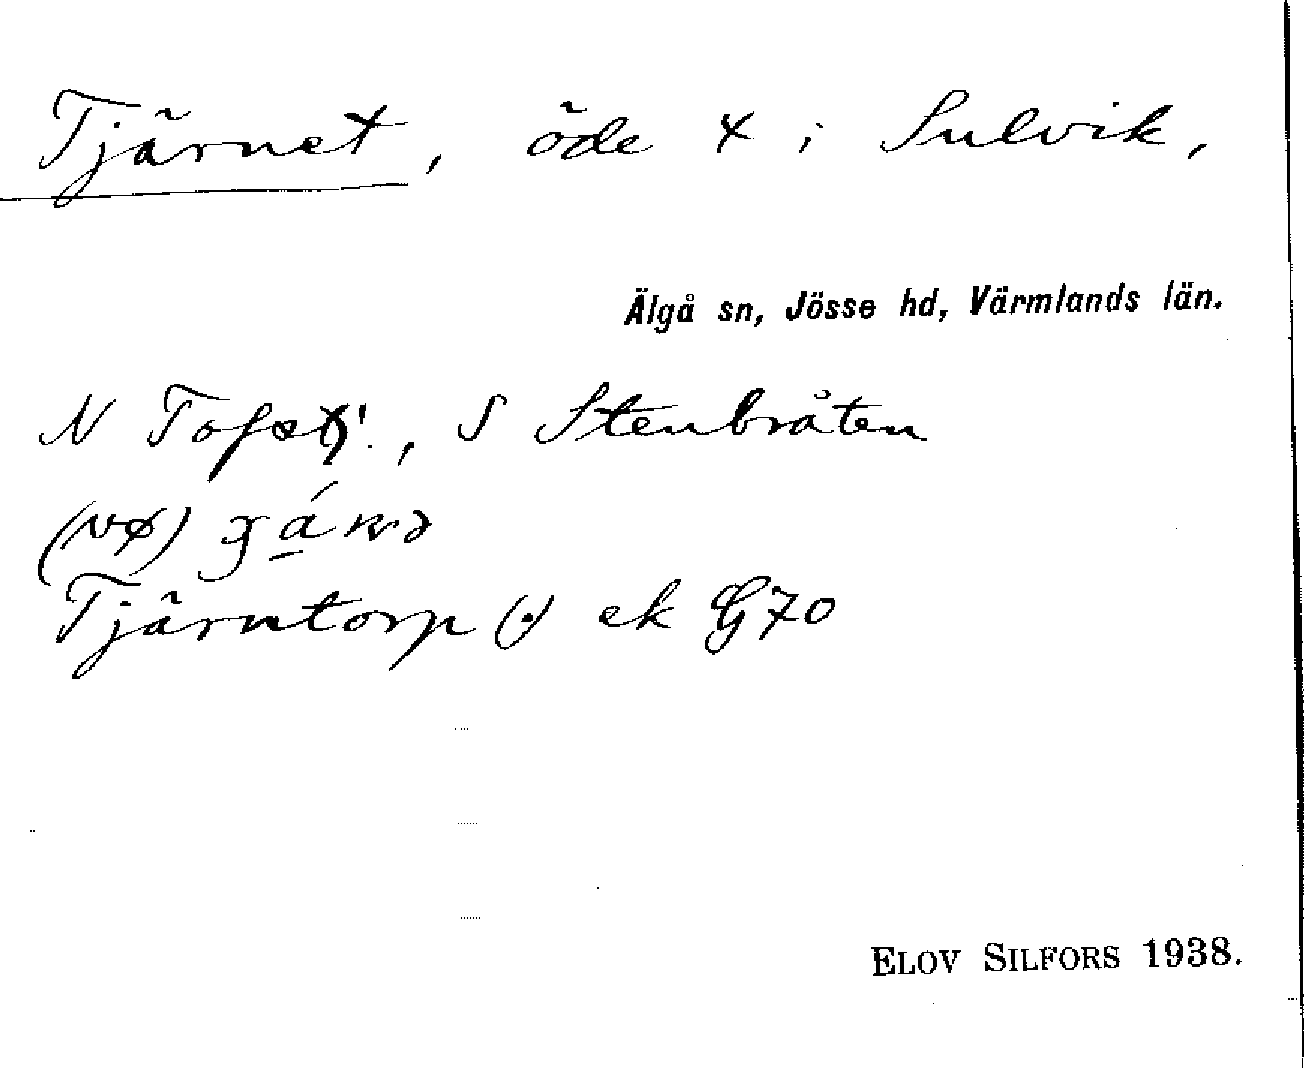 Tjärnet, öde × i Sulvik,
Älgå sn, Jösse hd, Värmlands län.
N , S Stenbråten
(NØ)
Tjärntorp (.) ek G70
ELOV SILFORS 1938.